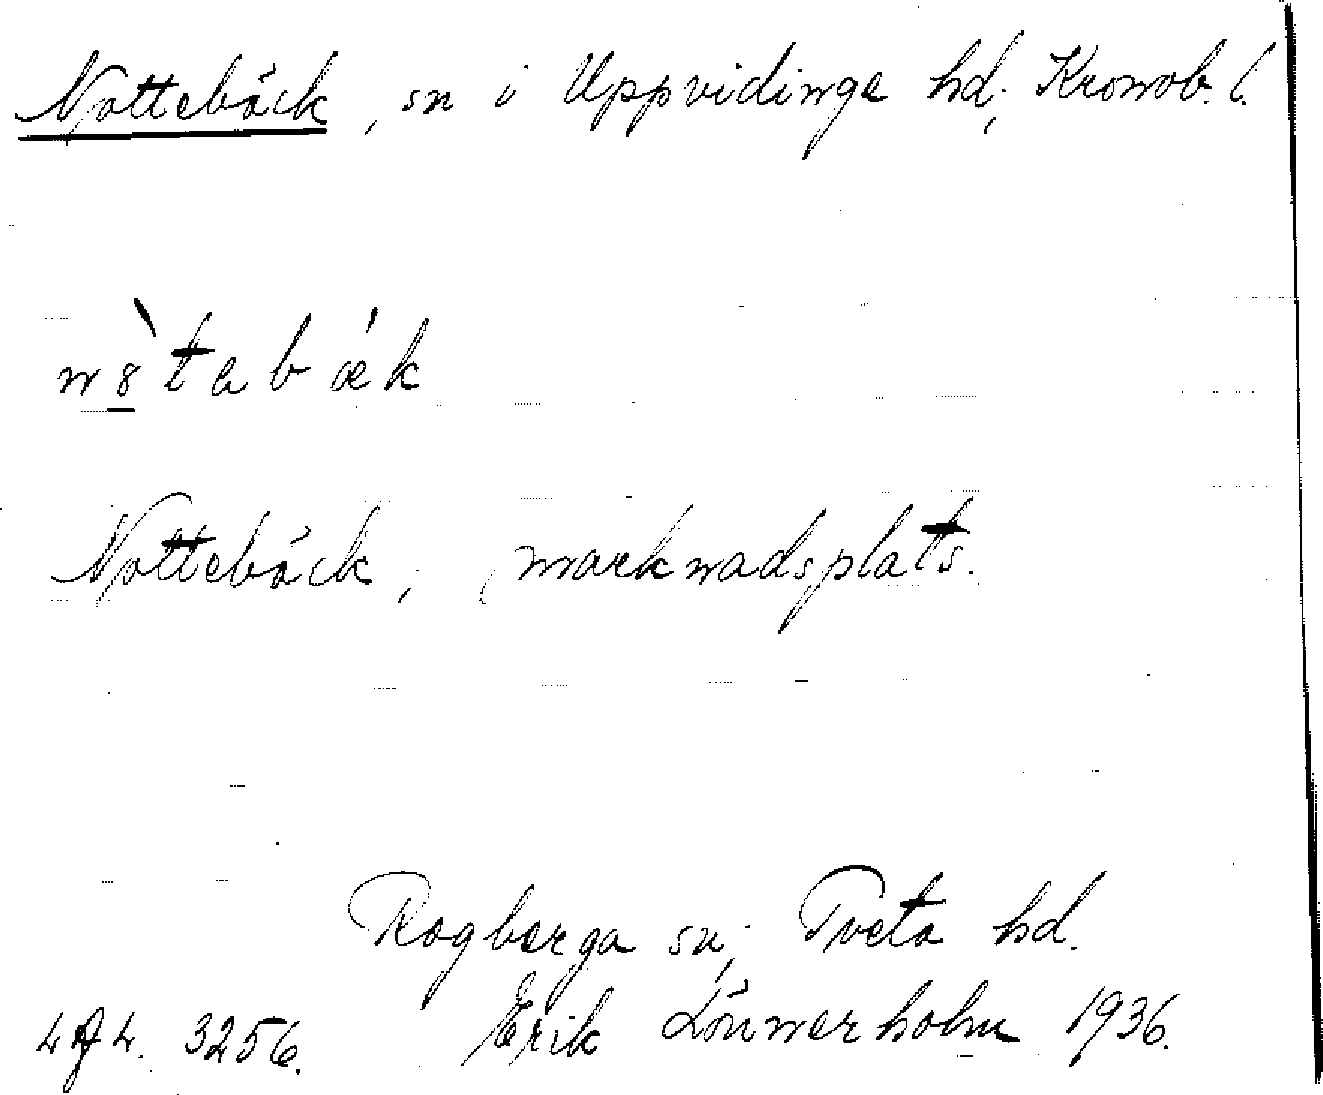 Nottebäck, sn i Uppvidinge hd, Kronob. l.
n8̲̀tabæ´k
Nottebäck, marknadsplats.
Rogberga sn, Tveta hd.
3256. Erik Lönnerholm 1936.